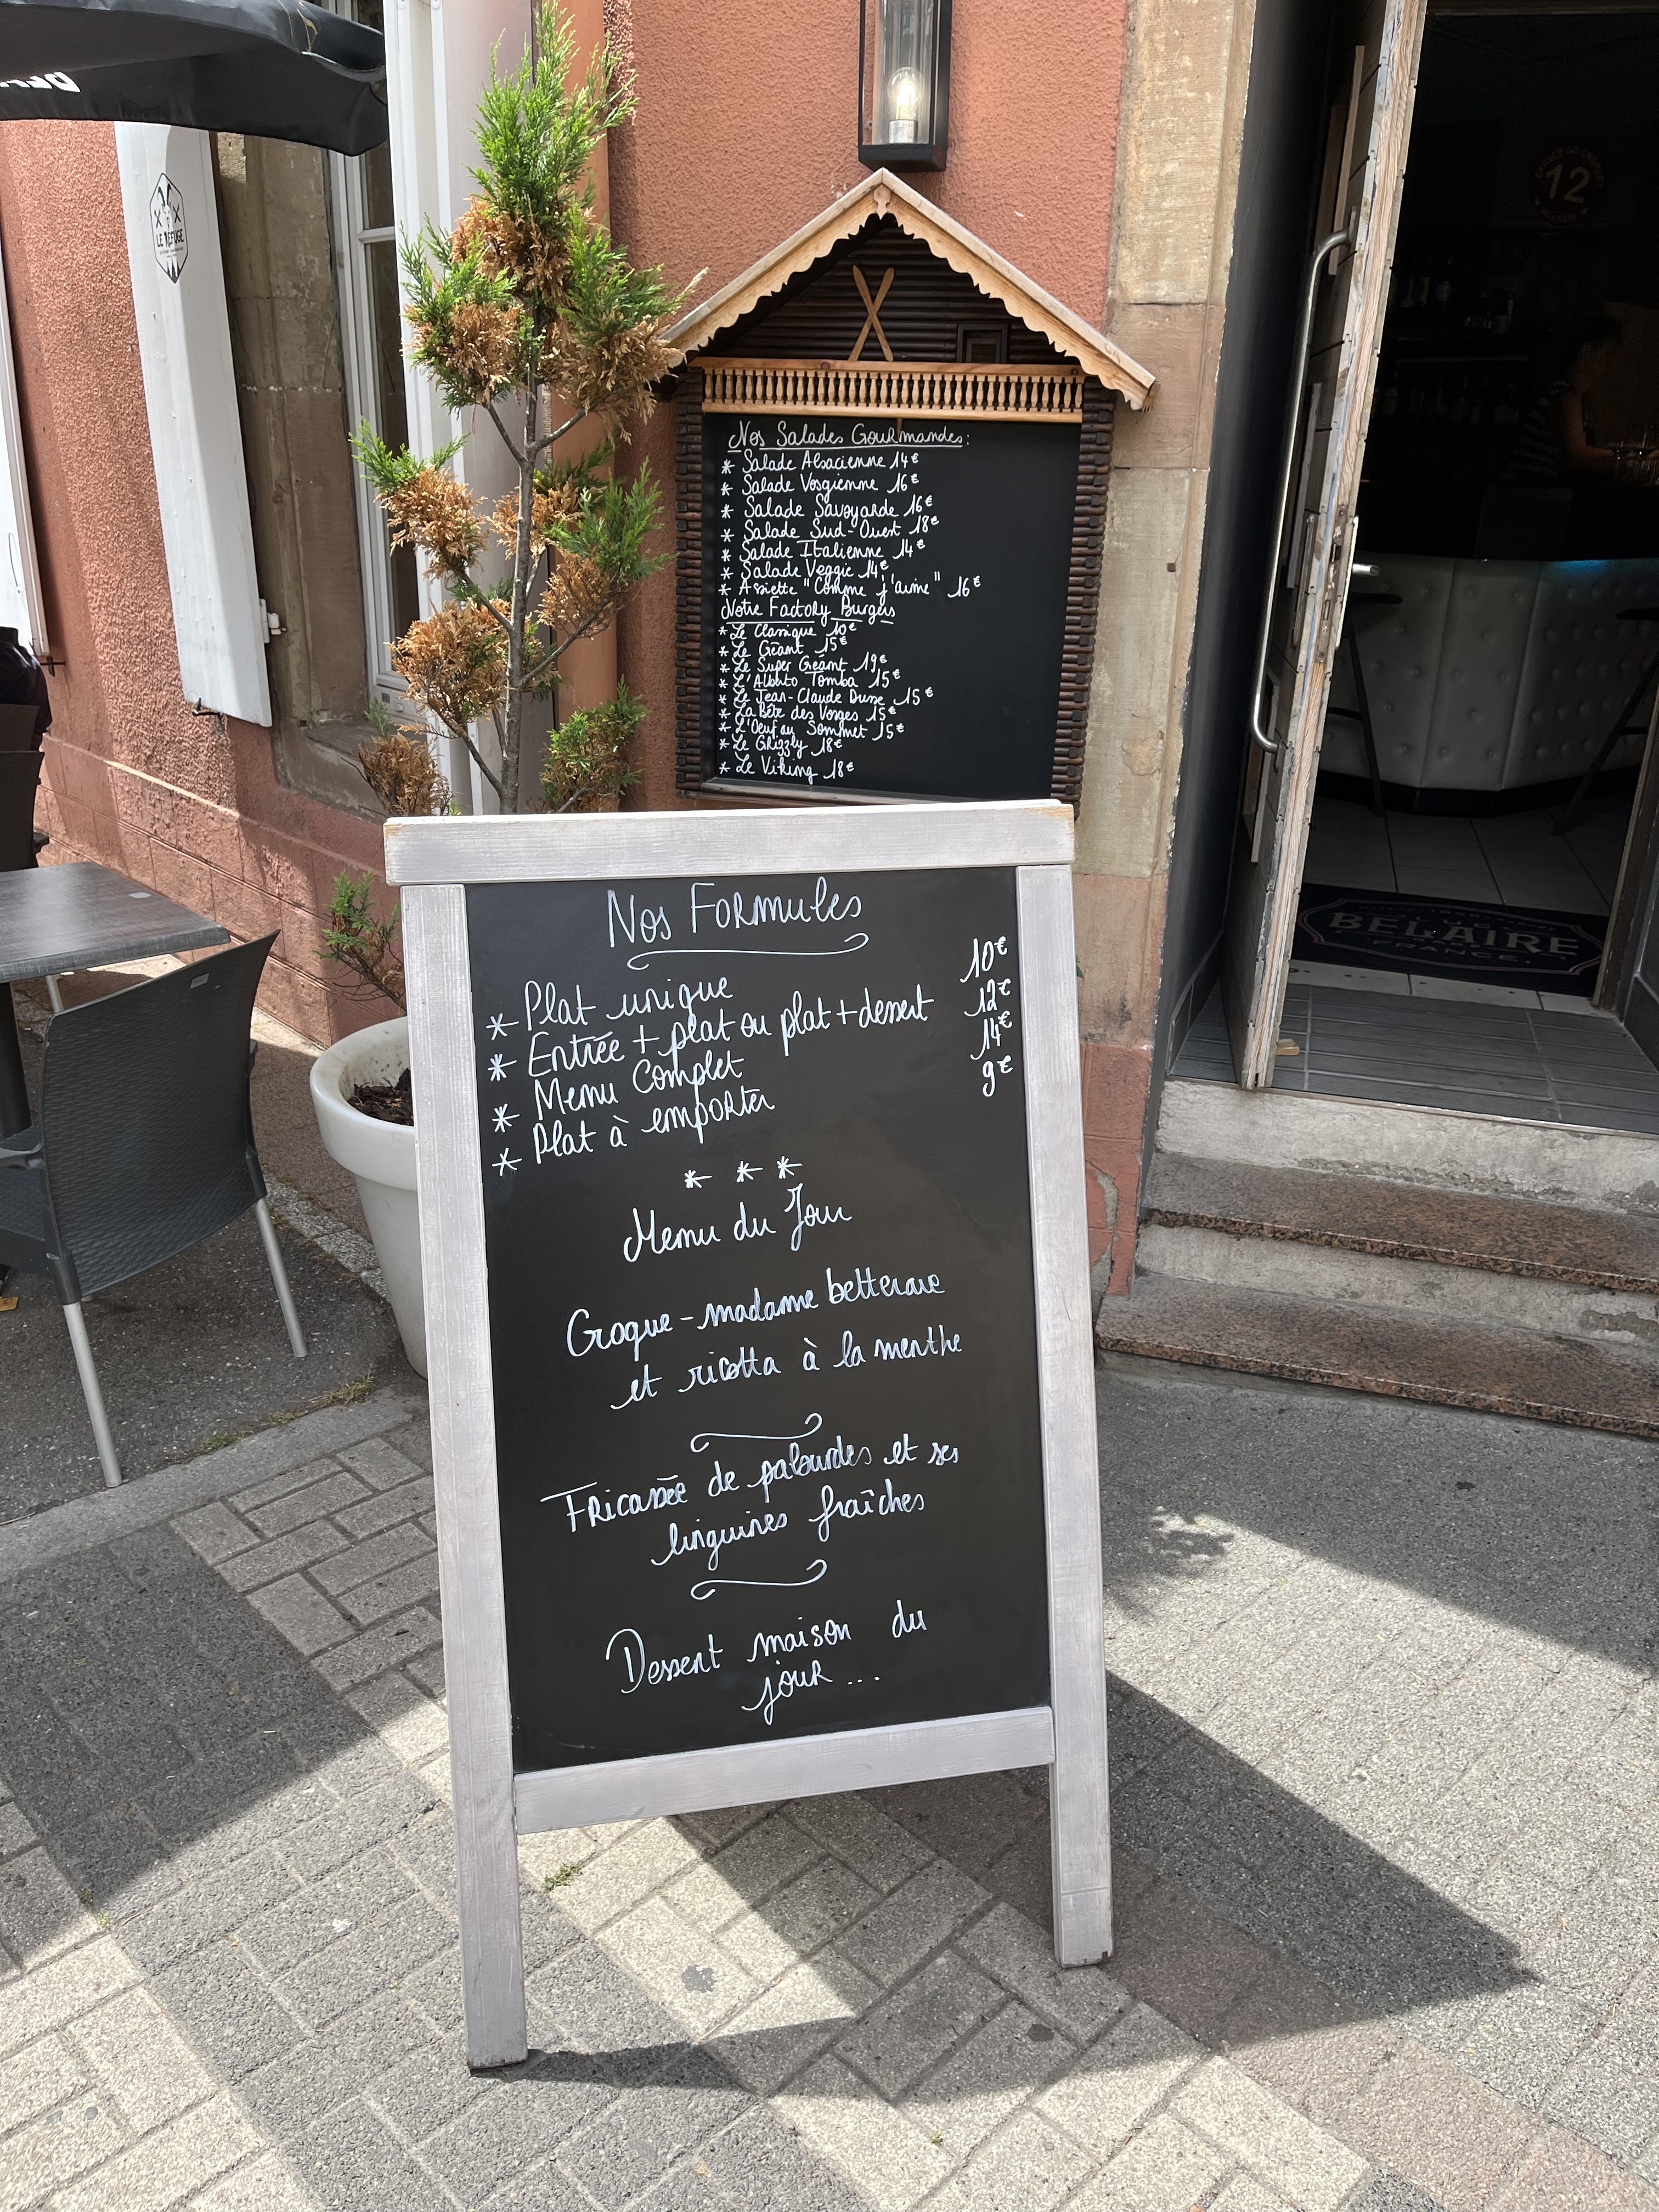 LE REFUGE
12
Nos Salades Gourmandes:
* Salade Alsacienne 14€
* Salade Vosgienne 16€
* Salade Savoyarde 16€
* Salade Sud-Ouest 18€
* Salade Italienne 14€
* Salade Veggie 14€
* Assiette "Comme j'aime" 16€
Notre Factory Burgers
* Le Classique 10€
* Le Géant 15€
* Le Super Géant 19€
* L'Alberto Tomba 15€
* Le Jean-Claude Dusse 15€
* La Bête des Vosges 15€
* L'Oeuf au Sommet 15€
* Le Grizzly 18€
* Le Viking 18€
BELAIRE
FRANCE
Nos Formules
* Plat unique 10€
* Entrée + plat ou plat + dessert 12€
* Menu Complet 14€
* Plat à emporter 9€
* * *
Menu du Jour
Croque-madame betterave
et ricotta à la menthe
Fricassée de palourdes et ses
linguines fraîches
Dessert maison du
jour...